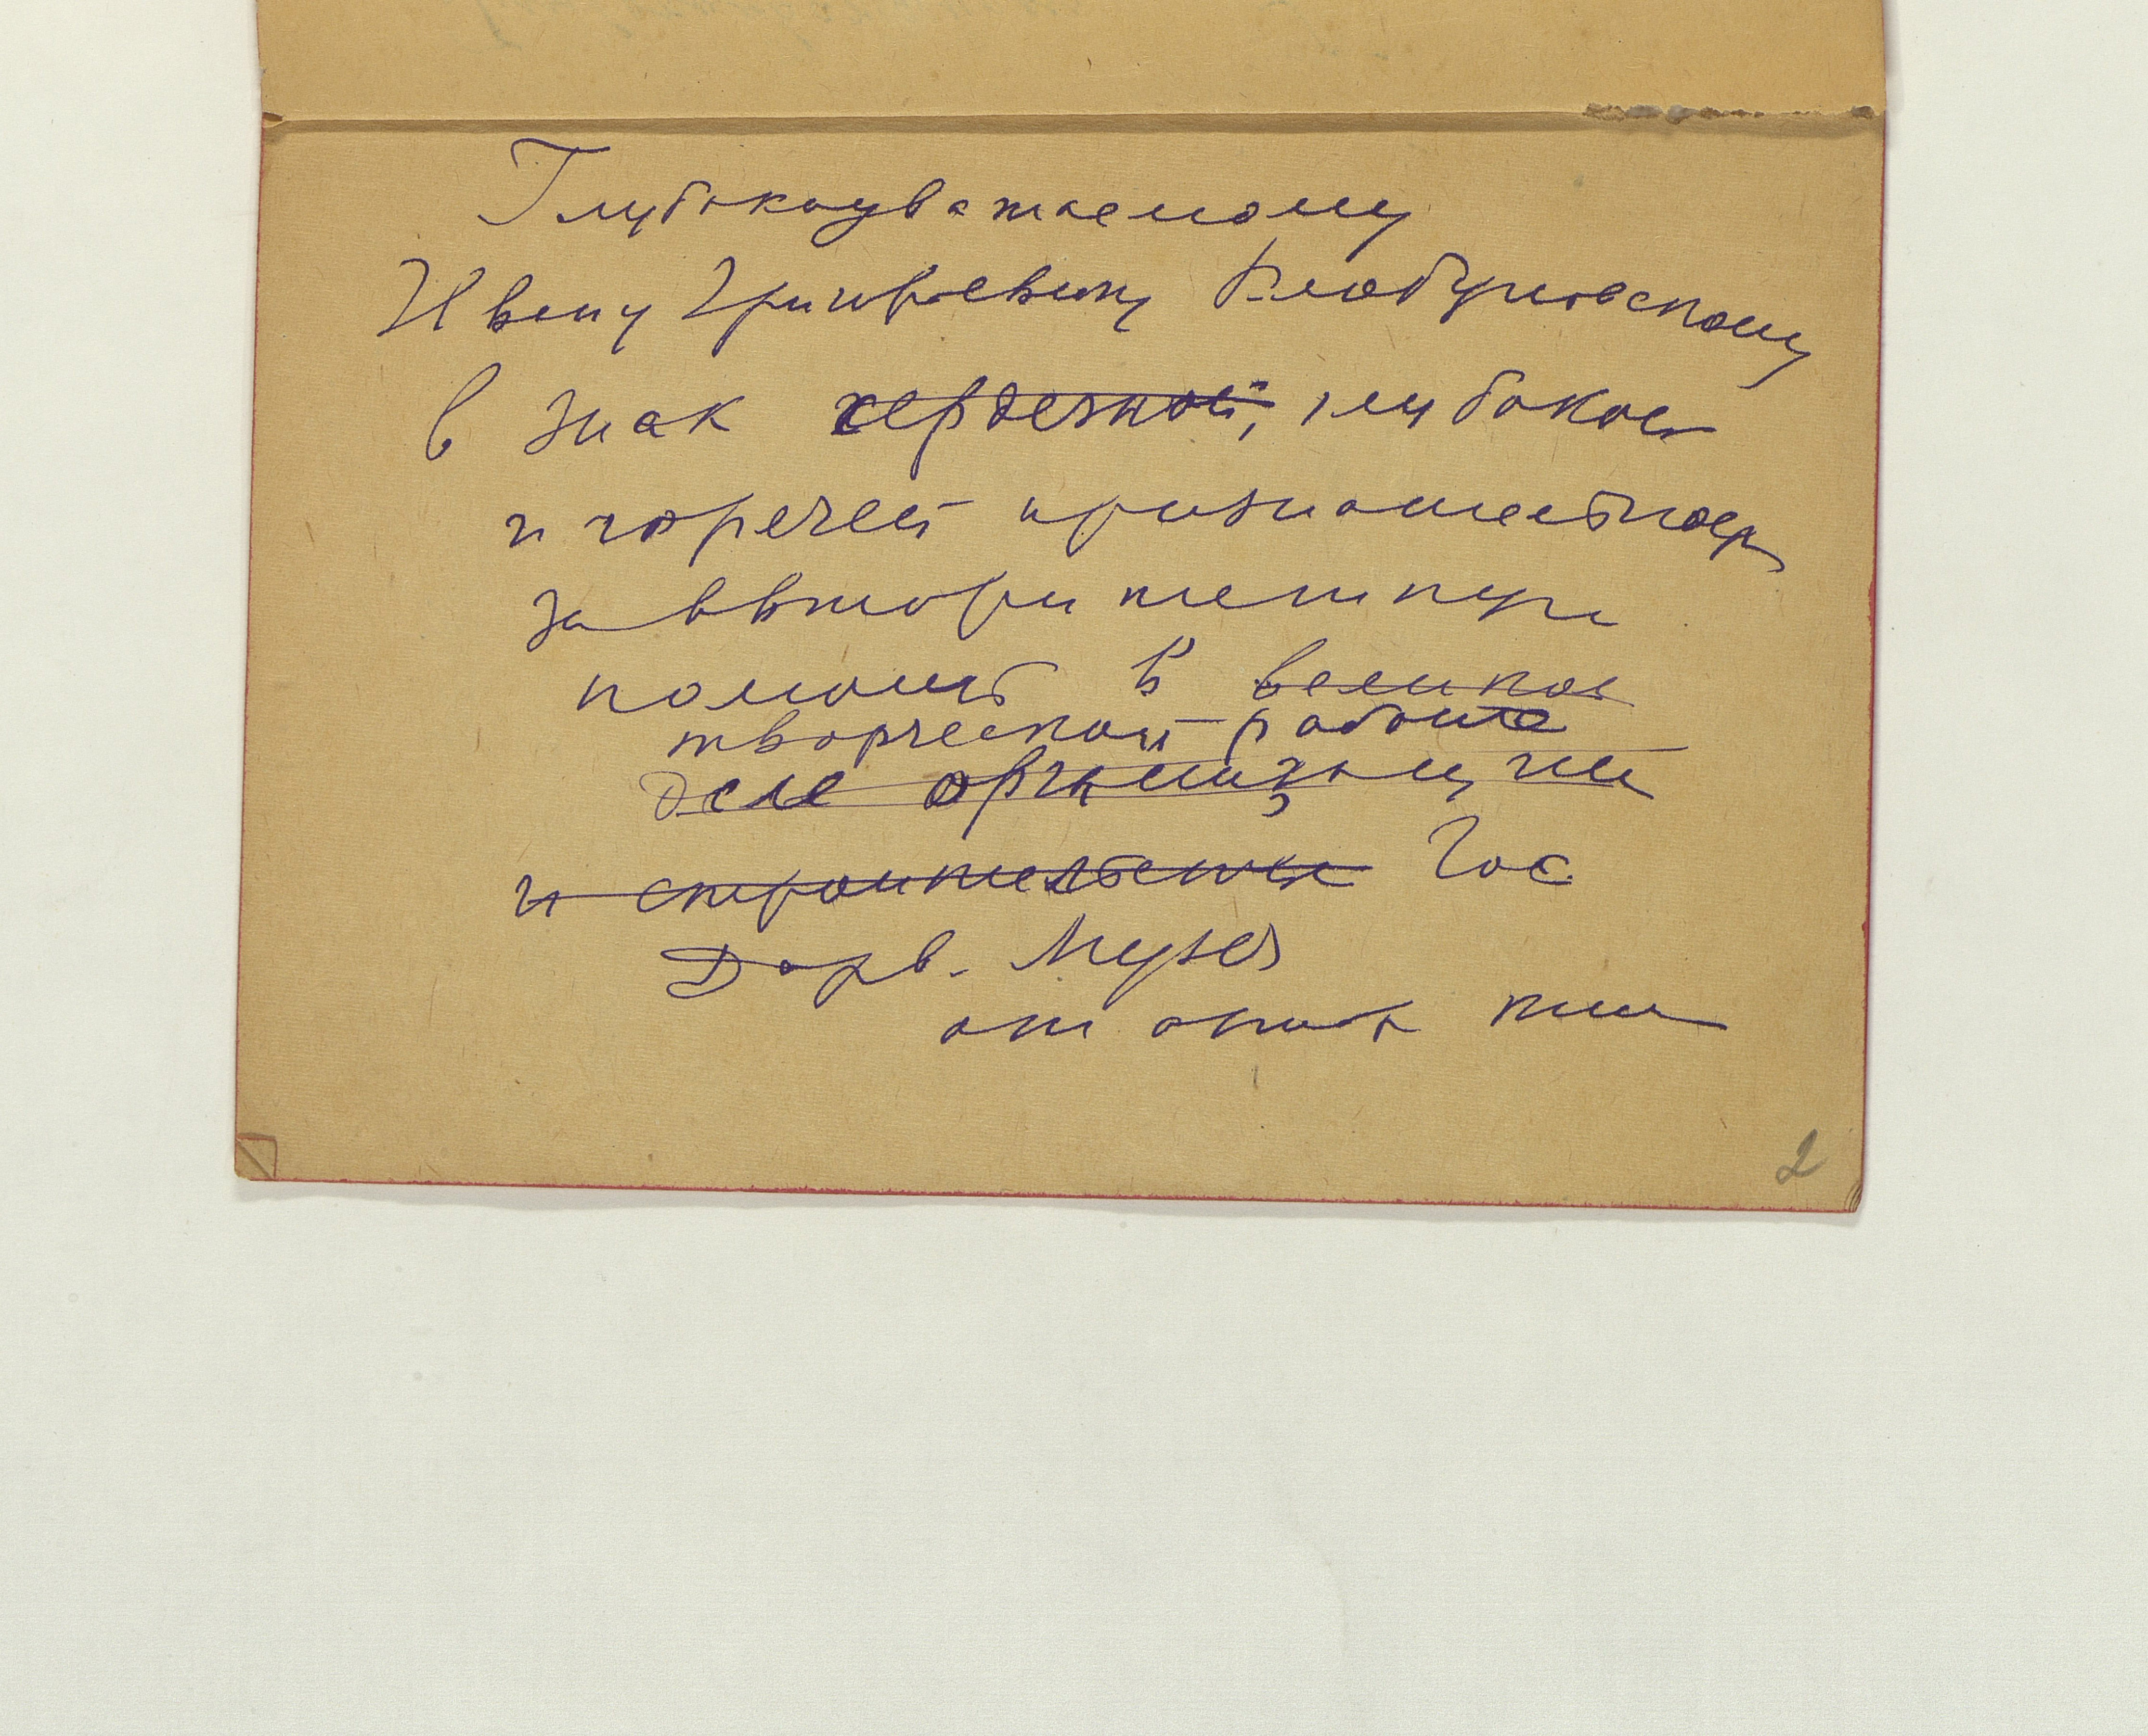 Глубокоуважаемому
Ивану Григорьевичу Клабуновскому
в знак сердечной, глубокой
и горячей признательности
за авторитетную
помощь в великой
творческой работе
деле организации
и строительства Гос
Дарв. Музея
от
2